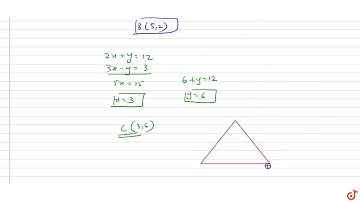 B(5,2)
2x+y=12
3x-y=3
5x=15
x=3
6+y=12
y=6
C(3,6)